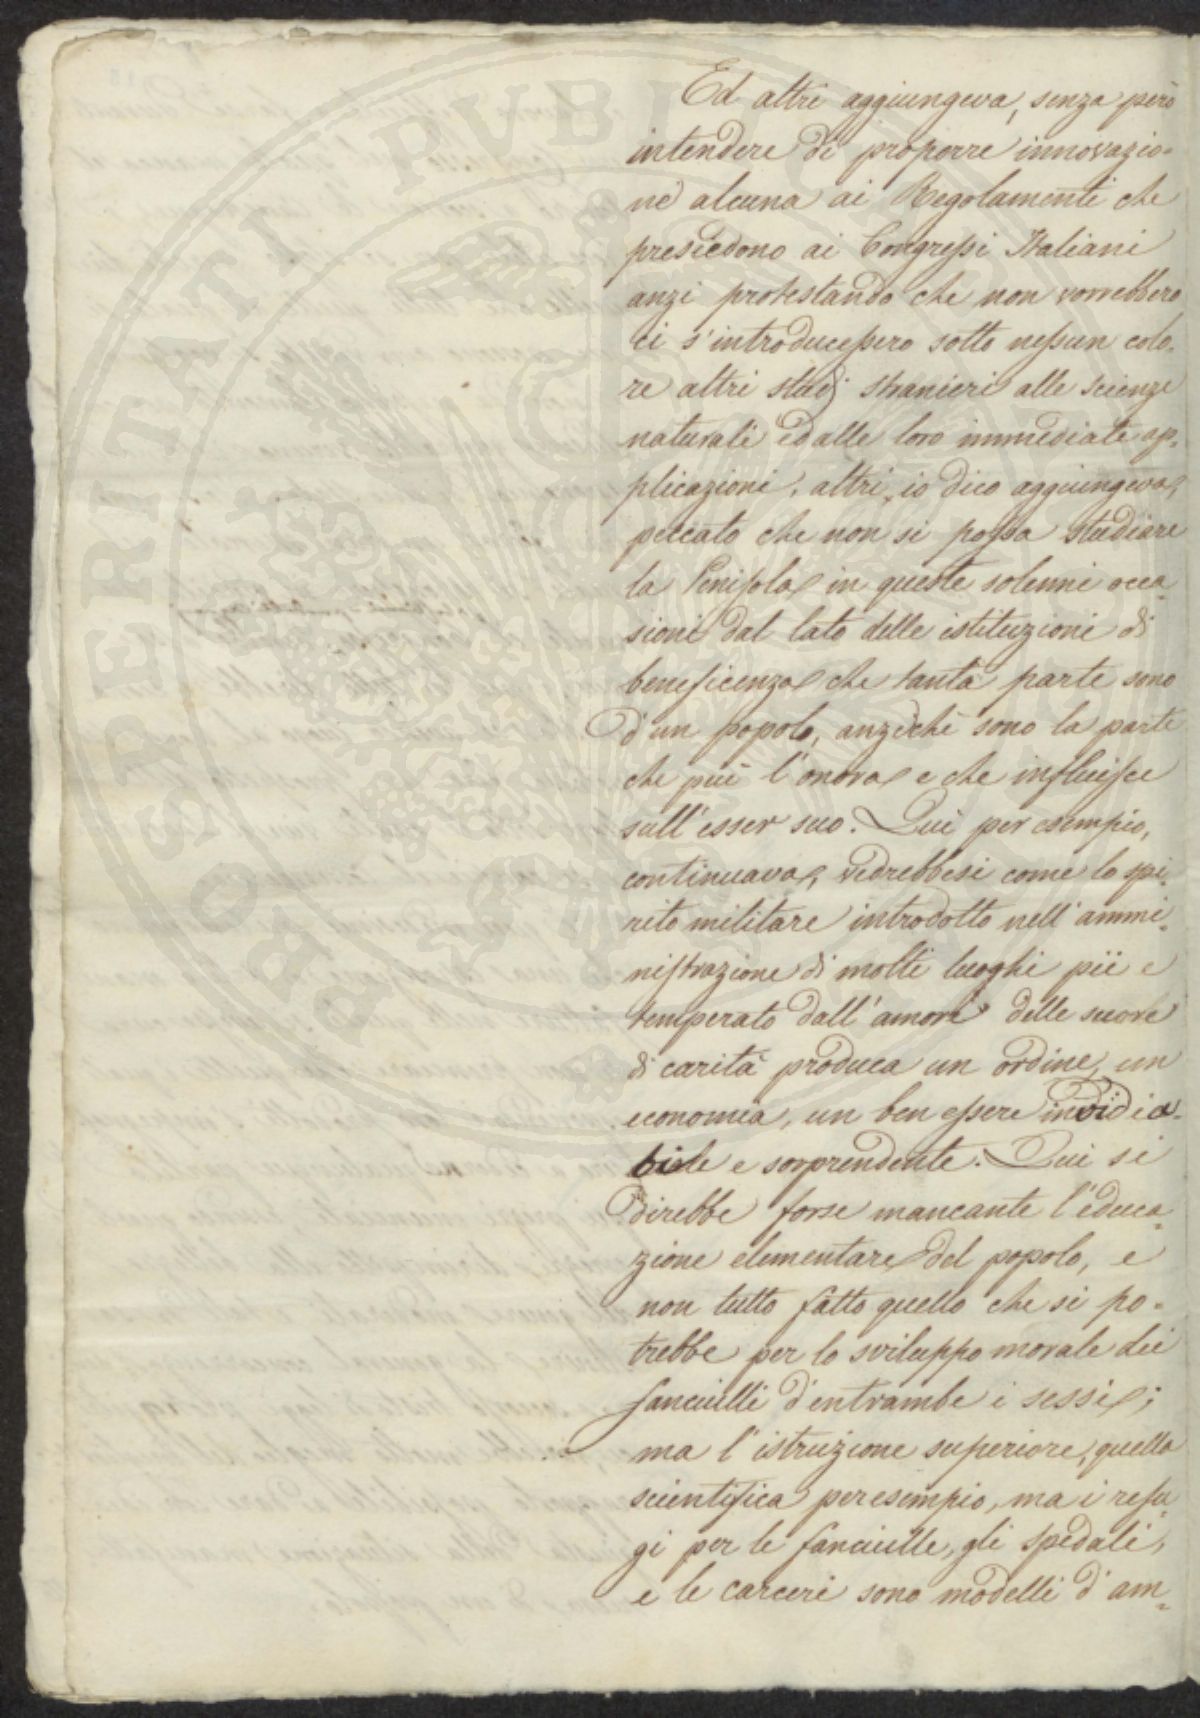 Ed altri aggiungeva, senza però
intendere di proporre innovazio=
ne alcuna ai Regolamenti che
presiedono ai Congressi Italiani
anzi protestando che non vorrebbero
ci s'introducessero sotto nessun colo=
re altri studj stranieri alle scienze
naturali ed alle loro immediate ap=
plicazioni, altri, io dico aggiungeva,
peccato che non si possa studiare
la Penisola in queste solenni occa=
sioni dal lato delle istituzioni di
beneficenza che tanta parte sono
d'un popolo, anzichè sono la parte
che più l'onora e che influisce
sull'esser suo. Qui per esempio,
continuava, vedrebbesi come lo spi=
rito militare introdotto nell'ammi=
nistrazione di molti luoghi pii e
temperato dall'amore delle suore
di carità produca un ordine, un
economia, un ben essere invidia=
bile e sorprendente. Qui si
direbbe forse mancante l'educa=
zione elementare del popolo, e
non tutto fatto quello che si po=
trebbe per lo sviluppo morale dei
fanciulli d'entrambe i sessi;
ma l'istruzione superiore, quella
scientifica per esempio, ma i refu=
gi per le fanciulle, gli spedali,
e le carceri sono modelli d'am=
PROSPERITATI PUBLICAE